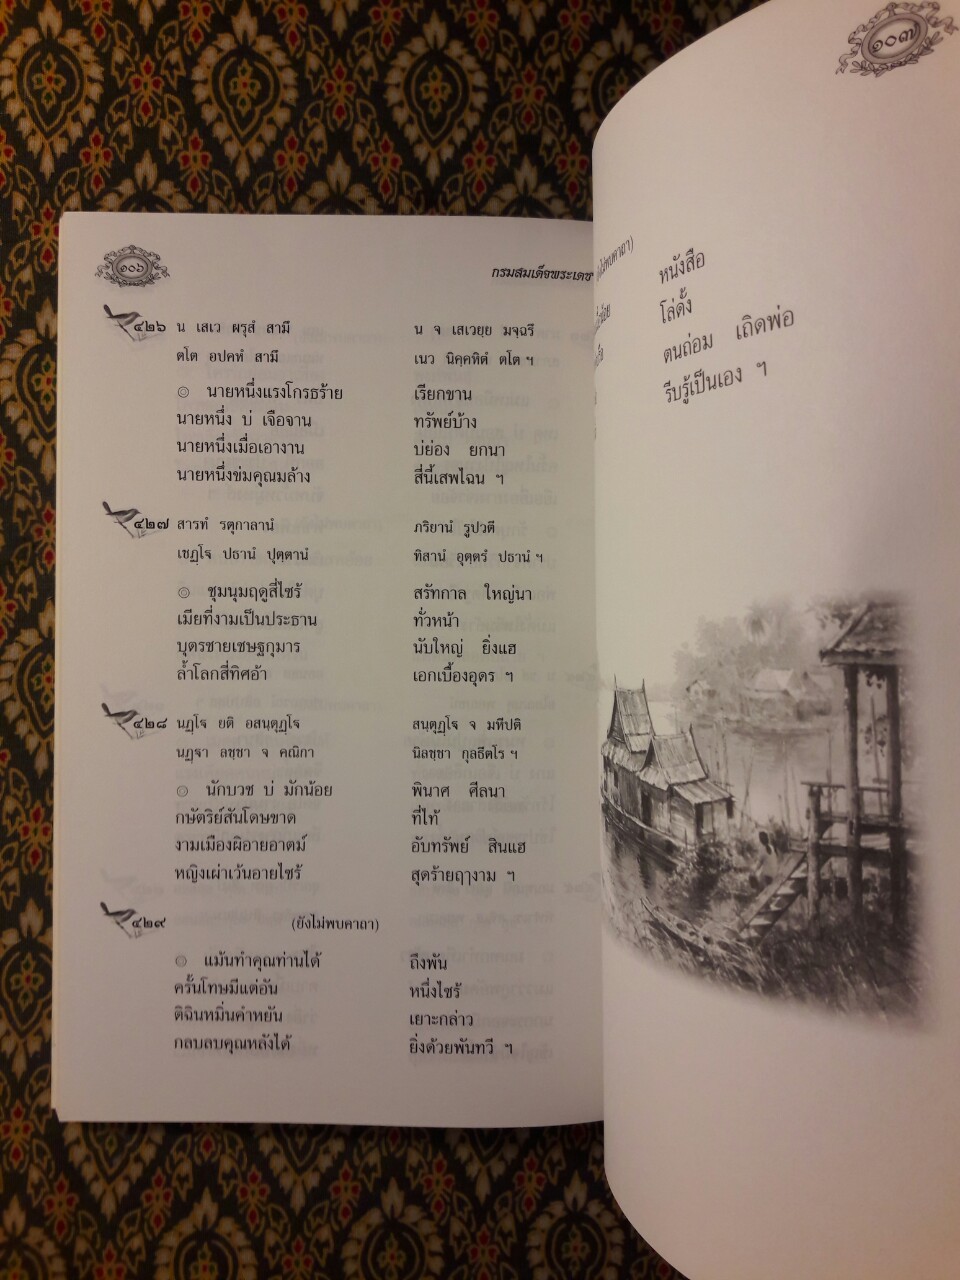 ๑๐๖
กรมสมเด็จพระเดช
๔๒๖ น เสเว ผรุสํ สามึ น จ เสเวยฺย มจฺฉรึ
ตโต อปคหํ สามึ เนว นิคฺคหิตํ ตโต ฯ
๏ นายหนึ่งแรงโกรธร้าย เรียกขาน
นายหนึ่ง บ่ เจือจาน ทรัพย์บ้าง
นายหนึ่งเมื่อเอางาน บ่ย่อง ยกนา
นายหนึ่งข่มคุณมล้าง สี่นี้เสพไฉน ฯ
๔๒๗ สารทํ รตุกาลานํ ภริยานํ รูปวตี
เชฏฺโจ ปธานํ ปุตฺตานํ ทิสานํ อุตฺตรํ ปธานํ ฯ
๏ ชุมนุมฤดูสี่ไซร้ สรัทกาล ใหญ่นา
เมียที่งามเป็นประธาน ทั่วหน้า
บุตรชายเชษฐกุมาร นับใหญ่ ยิ่งแฮ
ล้ำโลกสี่ทิศอ้า เอกเบื้องอุดร ฯ
๔๒๘ นฏฺโจ ยติ อสนฺตุฏฺโจ สนฺตุฏฺโจ จ มหีปติ
นฏฺจา ลชฺชา จ คณิกา นิลชฺชา กุลธีตโร ฯ
๏ นักบวช บ่ มักน้อย พินาศ ศีลนา
กษัตริย์สันโดษขาด ที่ไท้
งามเมืองผิอายอาตม์ อับทรัพย์ สินแฮ
หญิงเผ่าเว้นอายไซร้ สุดร้ายฤๅงาม ฯ
๔๒๙ (ยังไม่พบคาถา)
๏ แม้นทำคุณท่านได้ ถึงพัน
ครั้นโทษมีแต่อัน หนึ่งไซร้
ติฉินหมิ่นคำหยัน เยาะกล่าว
กลบลบคุณหลังได้ ยิ่งด้วยพันทวี ฯ
๑๐๗
ไม่พบคาถา)
หนังสือ
โล่ดั้ง
ตนถ่อม เถิดพ่อ
รีบรู้เป็นเอง ฯ